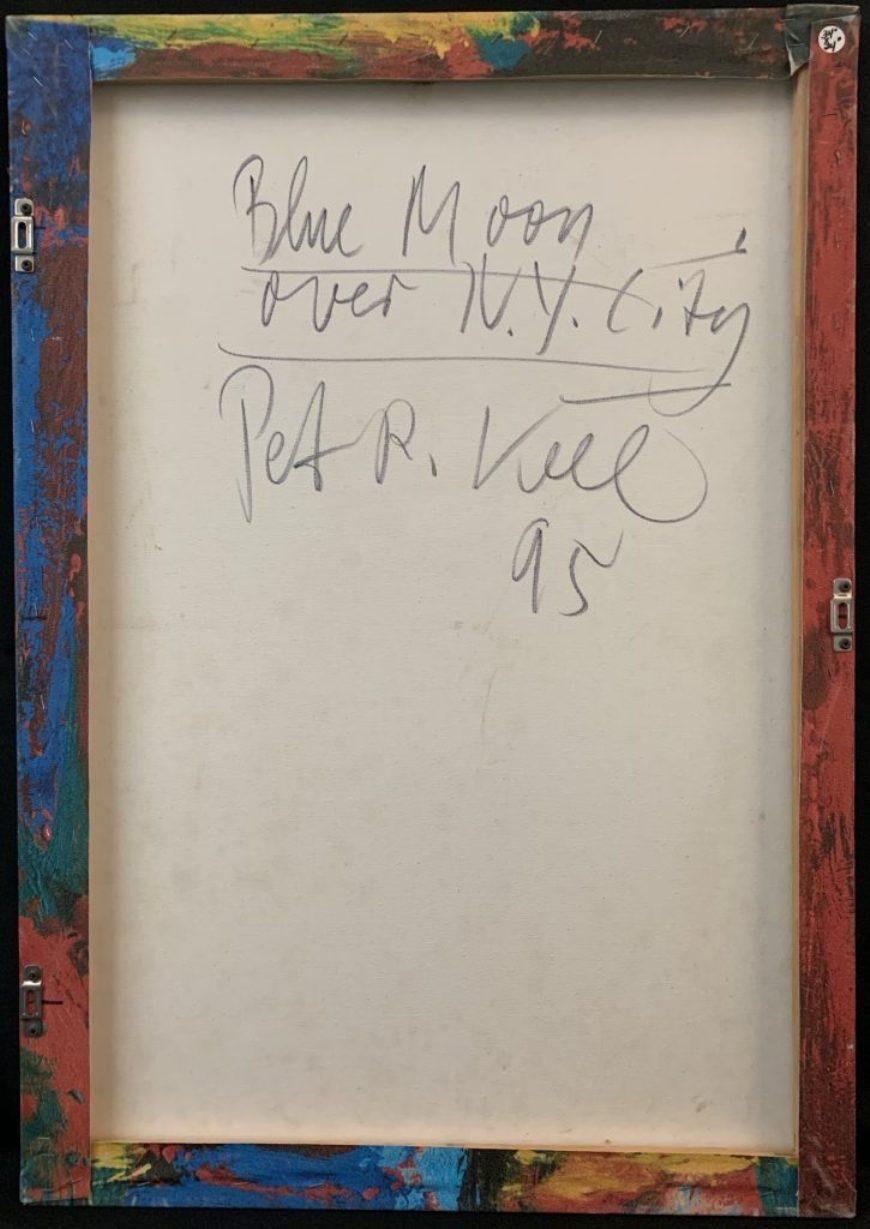 Blue Moon
over N.Y. City
Peter R. Keil
95